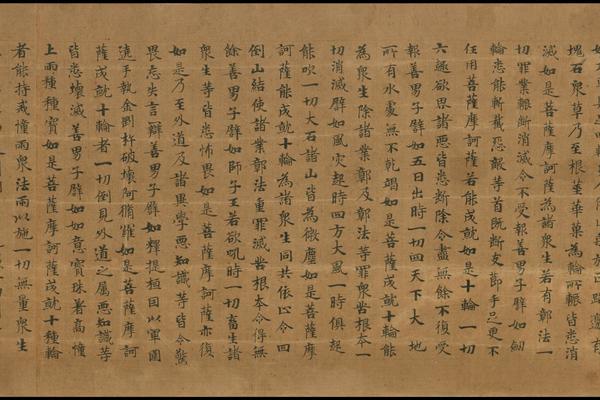 塊石眾草乃至根莖華菓為輪所輾皆悉消
滅如是菩薩摩訶薩為諸眾生若有鄣法一
切罪業斷消滅令不受報善男子辟如劍
輪悉能斬截怨敵等首既斷支節手足更不
任用菩薩摩訶薩若能成就如是十輪一切
六趣欲界諸惡皆悉斷除令盡無餘不復受
報善男子辟如五日出時一切四天下大地
所有水處無不乾竭如是菩薩成就十輪能
為眾生除諸業鄣及鄣法等罪眾苦根本一
切消滅辟如風灾起時四方大風一時俱起
能吹一切大石諸山皆為微塵如是菩薩摩
訶薩能成就十輪為諸眾生同共依止令回
倒山結使諸業鄣法重罪滅苦根本令得無
餘善男子辟如師子王若欲吼時一切畜生諸
眾生等皆悉怖畏如是菩薩摩訶薩亦復
如是乃至外道及諸異學惡知識等皆令驚
畏悉失言辯善男子辟如釋提桓因以軍圍
遶手執金剛杵破壞阿脩羅如是菩薩摩訶
薩成就十輪者一切倒見外道之屬惡知識等
皆悉壞滅善男子辟如如意寶珠著高幢
上雨種種寶如是菩薩摩訶薩成就十種輪
者能持戒幢雨眾法雨以施一切無量眾生